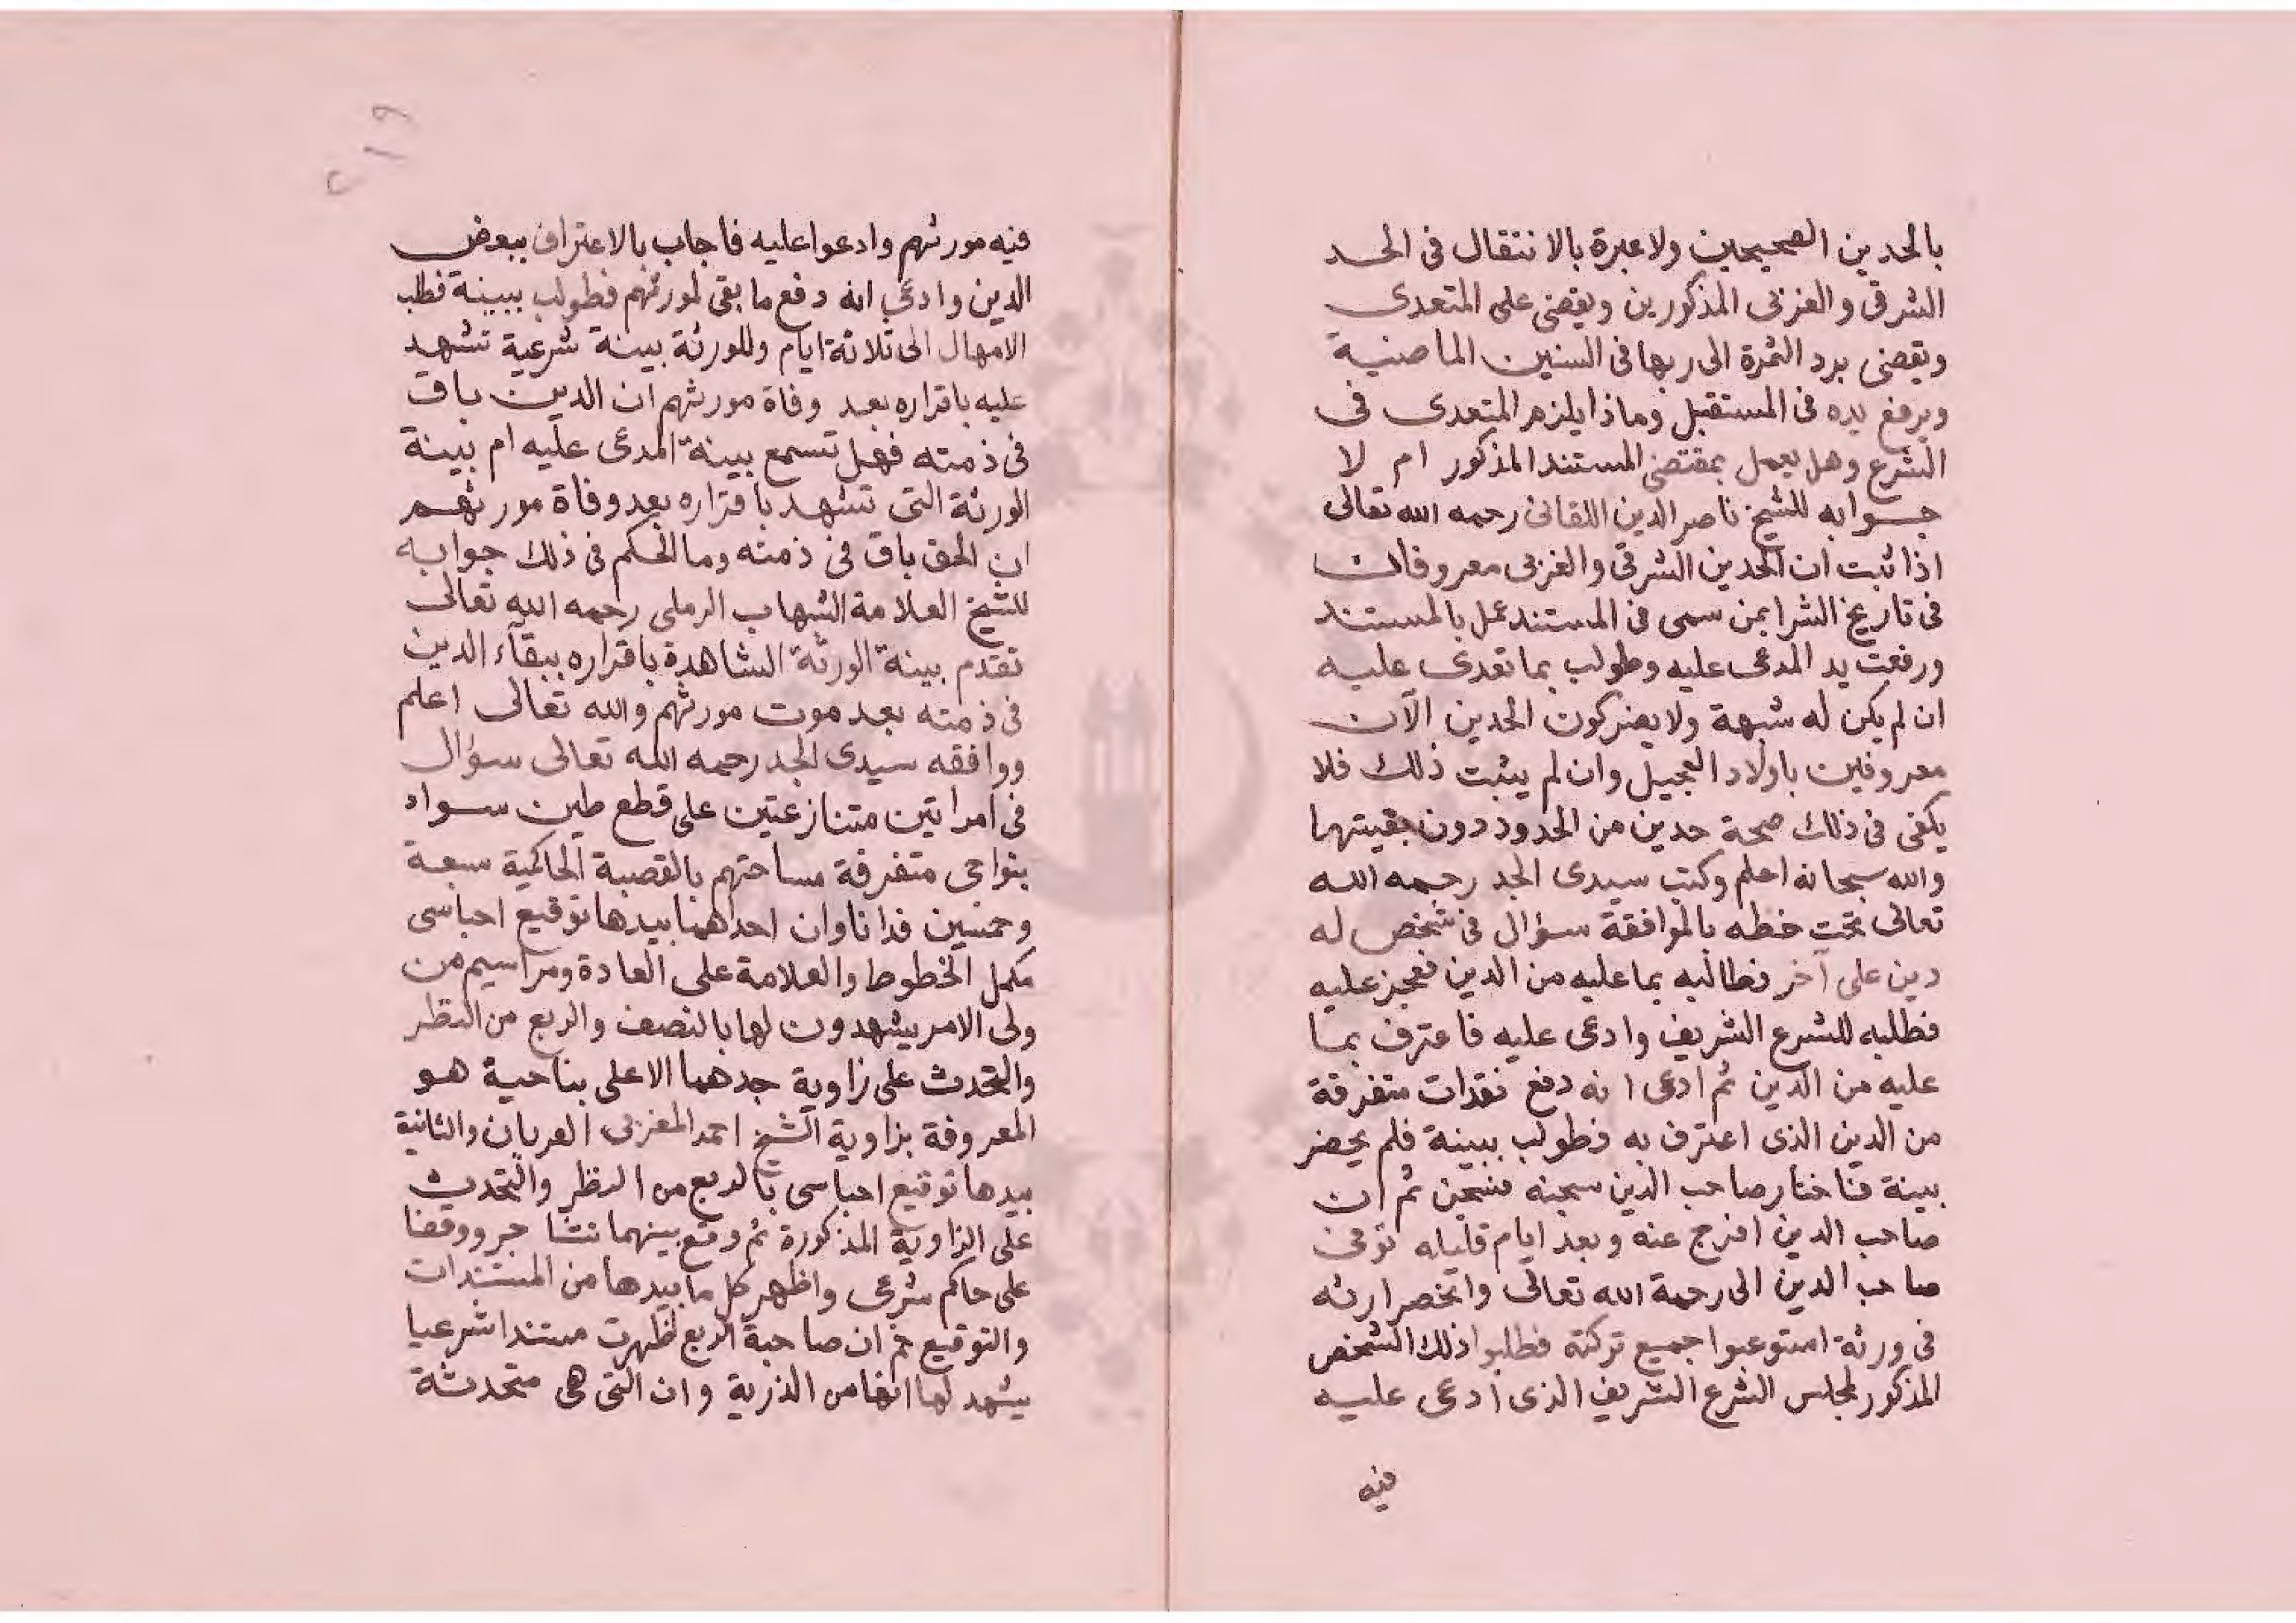 بالحدين الصحيحين ولا عبرة بالانتقال فى الحد
الشرقى والغربى المذكورين ويقضى على المتعدى
ويقضى برد الثمرة الى ربها فى السنين الماضية
وبرفع يده فى المستقبل وماذا يلزم المتعدى فى
الشرع وهل يعمل بمقتضى المستند المذكور ام لا
جوابه للشيخ ناصر الدين اللقانى رحمه الله تعالى
اذا ثبت ان الحدين الشرقى والغربى معروفان
فى تاريخ الشرا بمن سمى فى المستند عمل بالمستند
ورفعت يد المدعى عليه وطولب بما تعدى عليه
ان لم يكن له شبهة ولا يضر كون الحدين الآن
معروفين باولاد العجيل وان لم يثبت ذلك فلا
يكفى فى ذلك صحة حدين من الحدود دون بقيتها
والله سبحانه اعلم وكتب سيدى الجد رحمه الله
تعالى تحت خطه بالموافقة سؤال فى شخص له
دين على آخر فطالبه بما عليه من الدين فعجز عليه
فطلبه للشرع الشريف وادعى عليه فاعترف بما
عليه من الدين ثم ادعى انه دفع نقدات متفرقة
من الدين الذى اعترف به فطولب ببينة فلم يحضر
بينة فاختار صاحب الدين سجنه فسجن ثم ان
صاحب الدين افرج عنه وبعد ايام قليله توفى
صاحب الدين الى رحمة الله تعالى وانحصر ارثه
فى ورثة استوعبوا جميع تركته فطلبوا ذلك الشخص
المذكور لمجلس الشرع الشريف الذى ادعى عليه
فيه
٢١٩
فيه مورثهم وادعوا عليه فاجاب بالاعتراف ببعض
الدين وادعى انه دفع ما بقى لمورثهم فطولب ببينة فطلب
الامهال الى ثلاثة ايام وللورثة بينة شرعية تشهد
عليه باقراره بعد وفاة مورثهم ان الدين باق
فى ذمته فهل تسمع بينة المدعى عليه ام بينة
الورثة التى تشهد باقراره بعد وفاة مورثهم
ان الحق باق فى ذمته وما الحكم فى ذلك جوابه
للشيخ العلامة الشهاب الرملى رحمه الله تعالى
تقدم بينة الورثة الشاهدة باقراره ببقآء الدين
فى ذمته بعد موت مورثهم والله تعالى اعلم
ووافقه سيدى الجد رحمه الله تعالى سؤال
فى امراتين متنازعتين على قطع طين سواد
بنواحى متفرقة مساحتهم بالقصبة الحاكمية سبعة
وخمسين فدانا وان احداهما بيدها توقيع احباسى
مكمل الخطوط والعلامة على العادة ومراسيم من
ولى الامر يشهدون لها بالنصف والربع من النظر
والتحدث على زاوية جدهما الاعلى بناحية هو
المعروفة بزاوية الشيخ احمد المغربى العريان والثانية
بيدها توقيع احباسى بالربع من النظر والتحدث
على الزاوية المذكورة ثم وقع بينهما تشاجر ووقفا
على حاكم شرعى واظهر كل ما بيدها من المستندات
والتوقيع ثم ان صاحبة الربع لظهرت مستندا شرعيا
يشهد لها انها من الذرية وان التى هى متحدثة